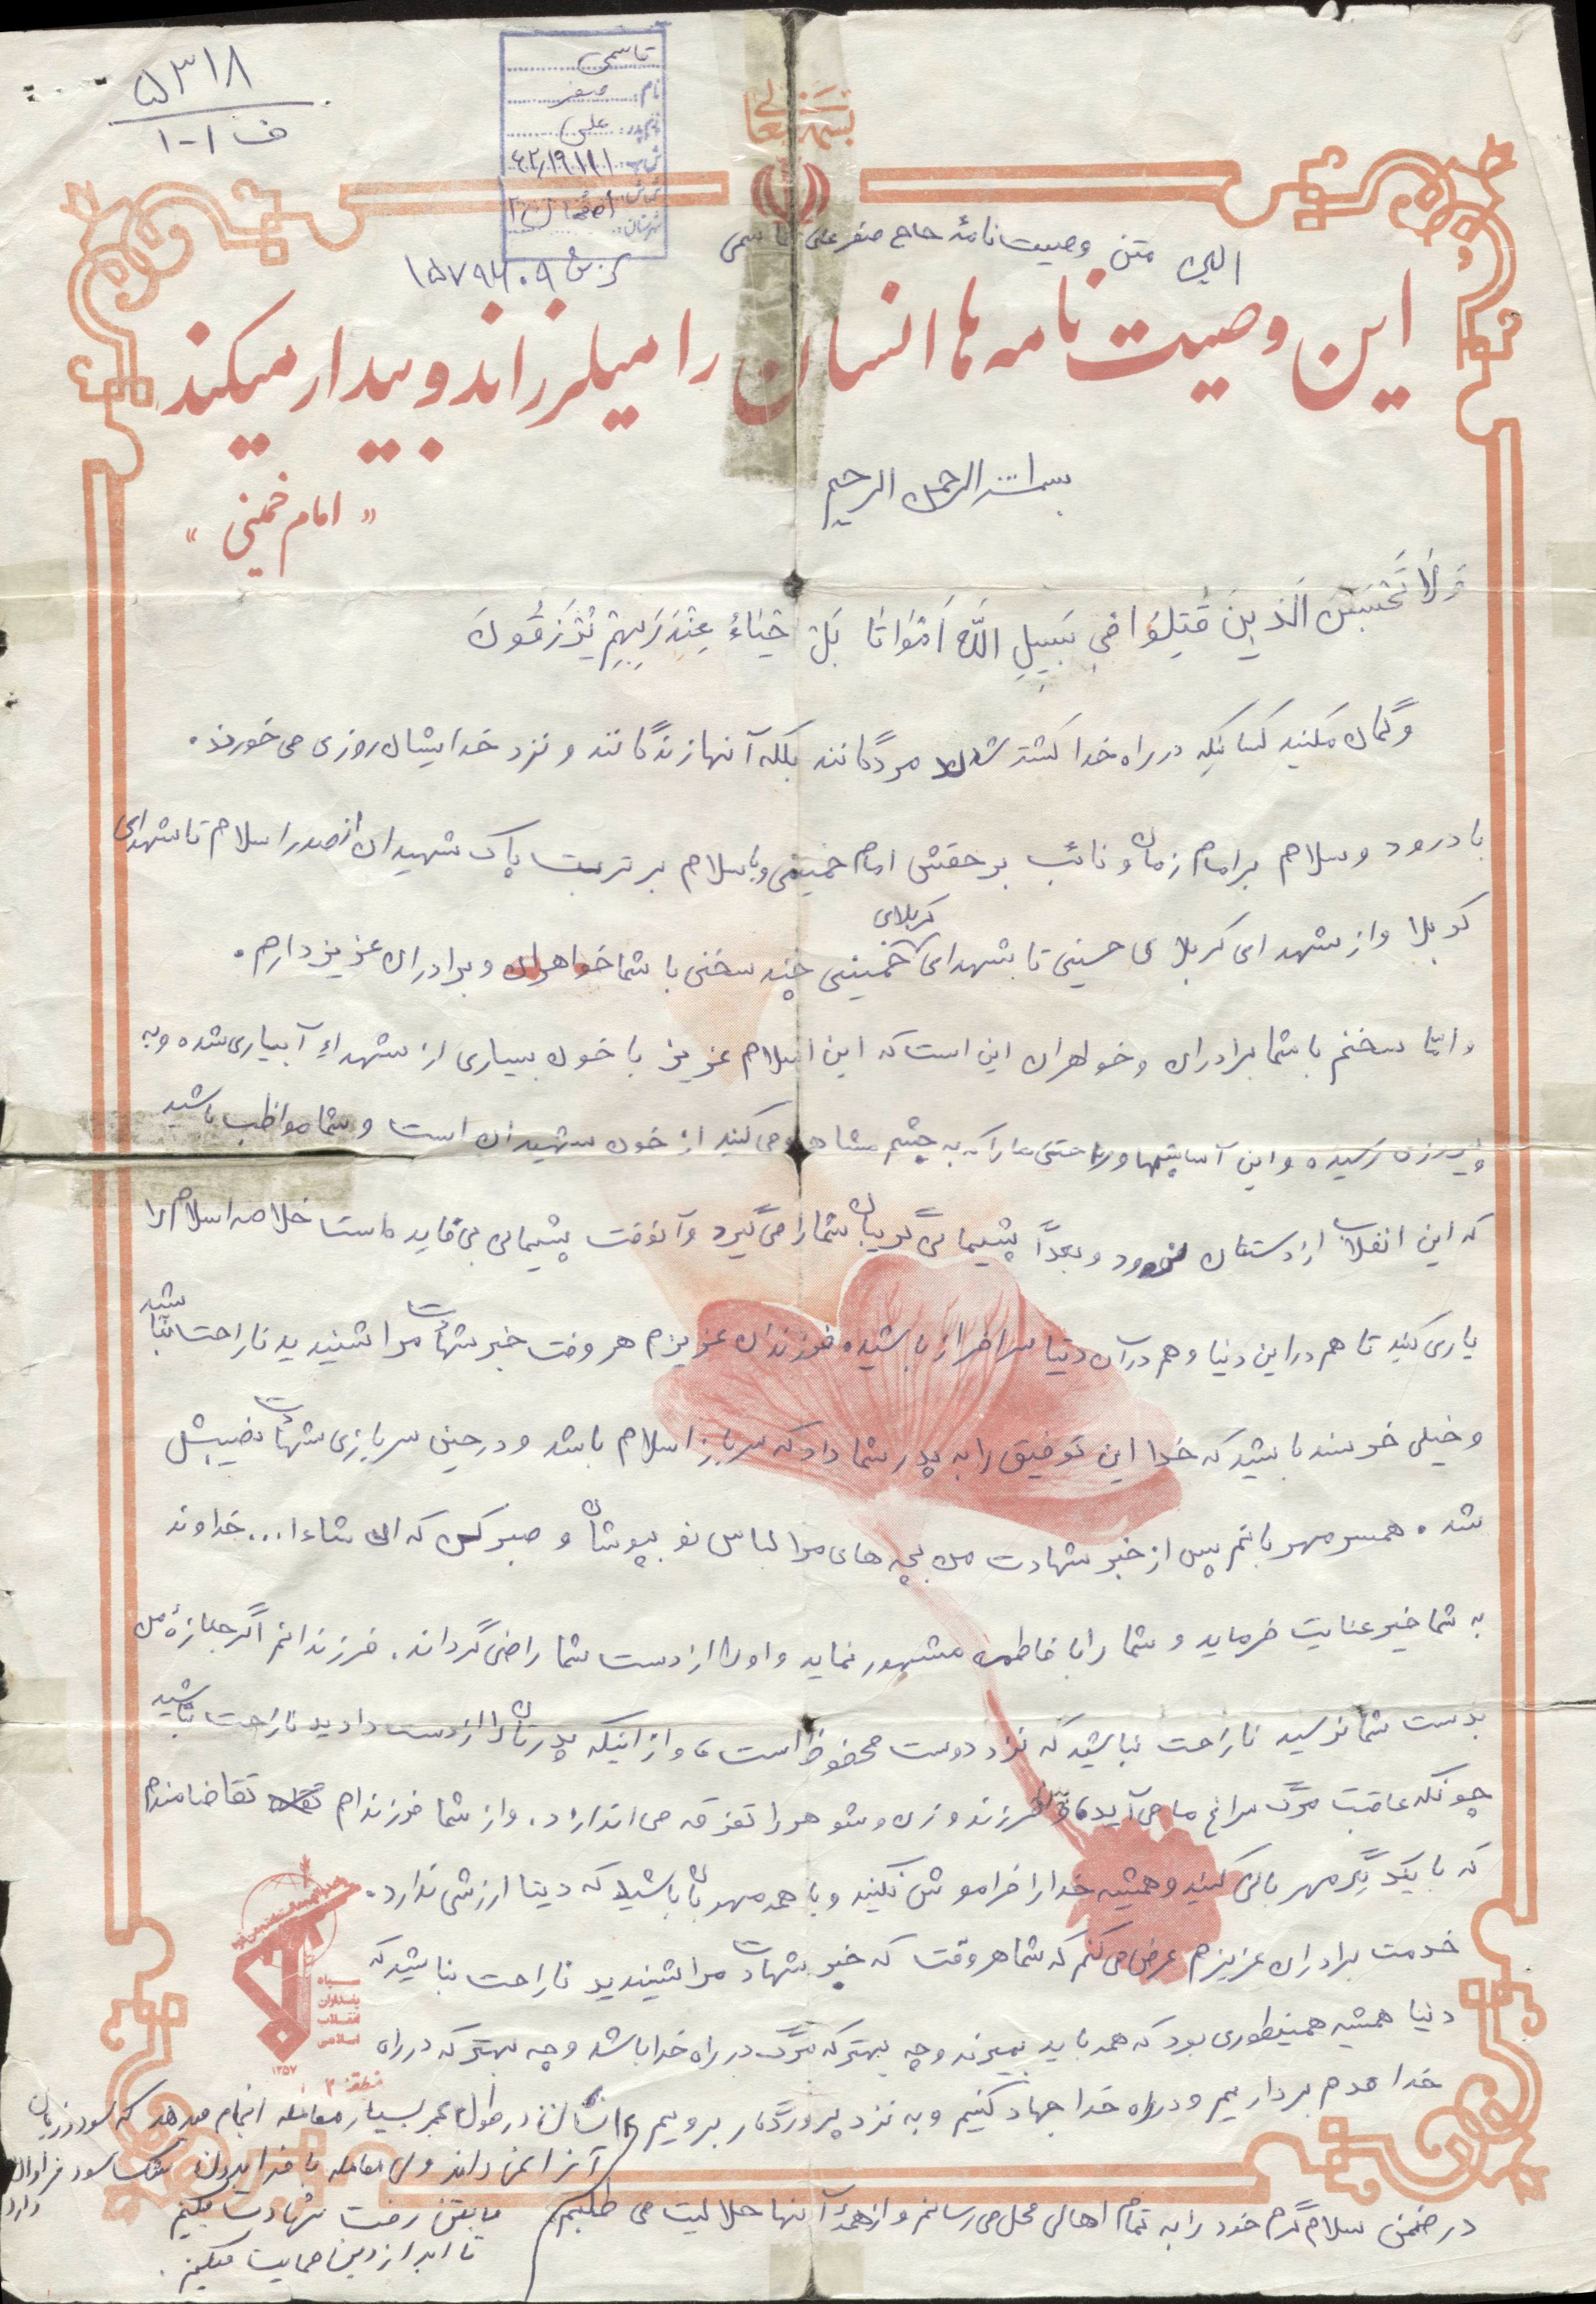 ۵۳۱۸
ف ۱-۱
قاسمی
نام: صفر
نام پدر: علی
اصفهان
شهرستان:
بسمه تعالی
کد ش ۱۵۷۹۶۰۹
این متن وصیت‌نامهٔ حاج صفر علی قاسمی
این وصیت نامه ها انسان را میلرزاند و بیدار میکند
« امام خمینی »
بسم الله الرحمن الرحیم
وَلَا تَحْسَبَنَّ الَّذِینَ قُتِلُوا فِی سَبِیلِ اللَّهِ اَمْوَاتًا بَلْ اَحْیَاءٌ عِنْدَ رَبِّهِمْ یُرْزَقُونَ
وگمان مکنید کسانیکه در راه خدا کشته شدند مردگانند بلکه آنها زندگانند و نزد خدایشان روزی می خورند.
با درود و سلام بر امام زمان و نائب بر حقش امام خمینی و با سلام بر تربت پاک شهیدان از صدر اسلام تا شهدای
کربلا و از شهدای کربلای حسینی تا شهدای کربلای خمینی چند سخنی با شما خواهران و برادران عزیز دارم.
و امّا سخنم با شما برادران و خواهران این است که این اسلام عزیز با خون بسیاری از شهداءِ آبیاری شده و به
پیروزی رسیده و این آسایشها و راحتی ها را که به چشم مشاهده می کنید از خون شهیدان است و شما مواظب باشید
که این انقلاب از دستتان نرود و بعداً پشیمانی گریبان شما را می گیرد و آنوقت پشیمانی بی فایده است خلاصه اسلام را
یاری کنید تا هم در این دنیا و هم در آن دنیا سرافراز باشید. فرزندان عزیزم هر وقت خبر شهادت مرا شنیدید ناراحت نباشید
و خیلی خرسند باشید که خدا این توفیق را به پدر شما داد که سرباز اسلام باشد و در حین سربازی شهادت نصیبش
شد. همسر مهربانم پس از خبر شهادت من بچه های مرا لباس نو بپوشان و صبر کن که ان شاءا... خداوند
به شما خیر عنایت فرماید و شما را با فاطمه مشهور نماید و او را از دست شما راضی گرداند. فرزندانم اگر جنازهٔ من
بدست شما نرسید ناراحت نباشید که نزد دوست محفوظ است، و از اینکه پدرتان را از دست دادید ناراحت نباشید
چونکه عاقبت مرگ سراغ ما می آید، فرزند و زن و شوهر را تفرقه می اندازد. و از شما فرزندام تقاضامندم
که با یکدیگر مهربانی کنید و همیشه خدا را فراموش نکنید و با همه مهربان باشید که دنیا ارزشی ندارد.
خدمت برادران عزیزم عرض می کنم که شما هر وقت که خبر شهادت مرا شنیدید ناراحت نباشید که
دنیا همیشه همینطوری بود که همه باید بمیرند و چه بهتر که مرگ در راه خدا باشد و چه بهتر که در راه
خدا قدم برداریم و در راه خدا جهاد کنیم و به نزد پروردگار برویم
سپاه
پاسداران
انقلاب
اسلامی
۱۳۵۷
منطقه ۲
انسان در طول عمر بسیار معامله انجام میدهد که سود و زیان
آنرا نمی داند ولی معامله با خدا بدون شک سود فراوان
دارد
در ضمن سلام گرم خود را به تمام اهالی محل می رسانم و از همهٔ آنها حلالیت می طلبم
ما به تن رخت شهادت میکنیم
تا ابد از دین حمایت میکنیم.